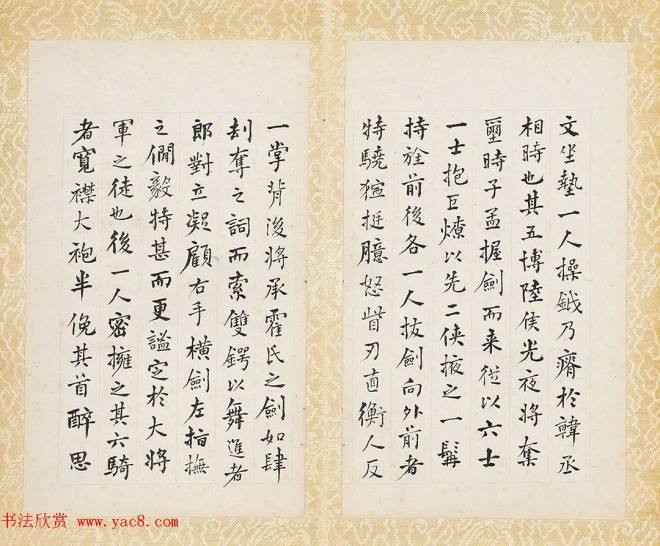 文坐墊一人操鉞乃瘠於韓丞
相時也其五博陸侯光夜將奪
璽時子孟握劍而来從以六士
一士抱巨燎以先二俠掖之一髯
持前後各一人拔劍向外前者
特驍猛挺臆怒眥刃直衡人反
一掌背後將承霍氏之劍如肆
刦奪之詞而索雙鍔以舞進者
郎對立凝顧右手橫劍左指撫
之僩毅特甚而更謐定於大將
軍之徒也後一人密擁之其六騎
者寬襟大袍半俛其首醉思
书法欣赏 www.yac8.com